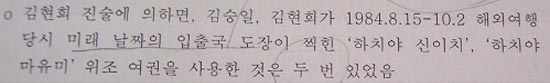 o 김현희 진술에 의하면, 김승일, 김현희가 1984.8.15-10.2 해외여행
당시 미래 날짜의 입출국 도장이 찍힌 '하치야 신이치', '하치야
마유미' 위조 여권을 사용한 것은 두 번 있었음